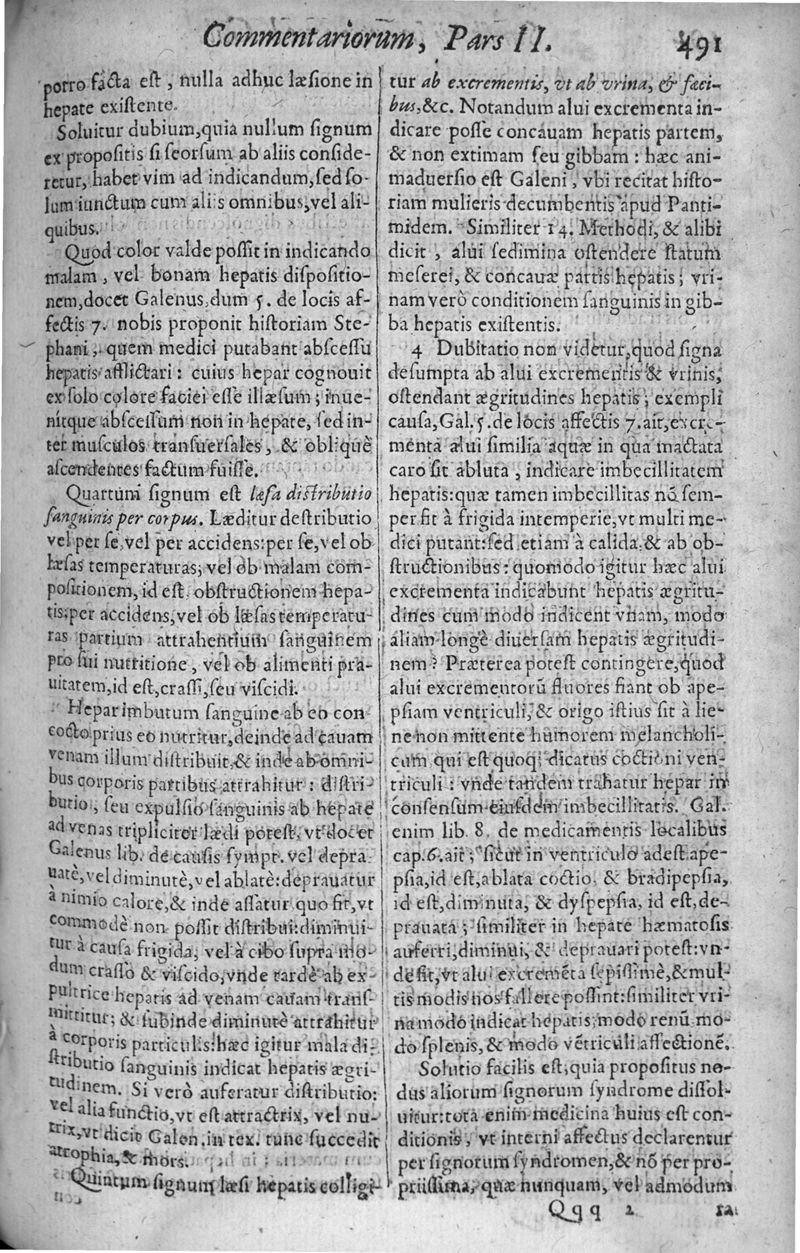 Commentariorum, Pars II. 491
porro facta est, nulla adhuc læsione in
hepate existente.
Soluitur dubium, quia nullum signum
ex propositis si seorsum ab aliis conside-
retur, habet vim ad indicandum, sed so-
lum iunctum cum aliis omnibus, vel ali-
quibus.
Quod color valde possit in indicando
malam, vel bonam hepatis dispositio-
nem, docet Galenus, dum 5. de locis af-
fectis 7. nobis proponit historiam Ste-
phani, quem medici putabant abscessu
hepatis afflictari: cuius hepar cognouit
ex solo colore faciei esse illæsum; inue-
nitque abscessum non in hepate, sed in-
ter musculos transuersales, & obliquè
ascendentes factum fuisse.
Quartum signum est læsa distributio
sanguinis per corpus. Læditur destributio
vel per se, vel per accidens: per se, vel ob
læsas temperaturas, vel ob malam com-
positionem, id est, obstructionem hepa-
tis: per accidens, vel ob læsas temperatu-
ras partium attrahentium sanguinem
pro sui nutritione, vel ob alimenti pra-
uitatem, id est, crassi, seu viscidi.
Hepar imbutum sanguine ab eo con
cocto prius eo nutritur, deinde ad cauam
venam illum distribuit, & inde ab omni-
bus corporis partibus attrahitur: distri-
butio, seu expulsio sanguinis ab hepate
ad venas tripliciter lædi potest, vt docet
Galenus lib. de causis sympt. vel depra-
uatè, vel diminutè, vel ablatè: deprauatur
a nimio calore, & inde assatur, quo fit, vt
commodè non possit distribui: diminui-
tur à causa frigida, vel à cibo supra mo-
dum crasso & viscido, vnde tardè ab ex-
pultrice hepatis ad venam cauam trans-
mittitur; & subinde diminutè attrahitur
a corporis particulis: hæc igitur mala di-
stributio sanguinis indicat hepatis ægri-
tudinem. Si verò auferatur distributio:
vel alia functio, vt est attractrix, vel nu-
trix, vt dicit Galen. in tex. tunc succedit
atrophia, & mors.
Quintum signum læsi hepatis colligi-
tur ab excrementis, vt ab vrina, & fæci-
bus, &c. Notandum alui excrementa in-
dicare posse concauam hepatis partem,
& non extimam seu gibbam: hæc ani-
maduersio est Galeni, vbi recitat histo-
riam mulieris decumbentis apud Panti-
midem. Similiter 14. Methodi, & alibi
dicit, alui sedimina ostendere statum
meserei, & concauæ partis hepatis; vri-
nam verò conditionem sanguinis in gib-
ba hepatis existentis.
4 Dubitatio non videtur, quod signa
desumpta ab alui excrementis & vrinis,
ostendant ægritudines hepatis; exempli
causa, Gal. 5. de locis affectis 7. ait, excre-
menta alui similia aquæ in qua mactata
caro sit abluta, indicare imbecillitatem
hepatis: quæ tamen imbecillitas nõ sem-
per fit à frigida intemperie, vt multi me-
dici putant: sed etiam à calida, & ab ob-
structionibus: quomodo igitur hæc alui
excrementa indicabunt hepatis ægritu-
dines cum modo indicent vnam, modo
aliam longè diuersam hepatis ægritudi-
nem? Præterea potest contingere, quod
alui excrementorũ fluores fiant ob ape-
psiam ventriculi, & origo istius sit à lie-
ne non mittente humorem melancholi-
cum qui est quoq; dicatus coctioni ven-
triculi: vnde tandem trahatur hepar in
consensum eiusdem imbecillitatis. Gal.
enim lib. 8. de medicamentis localibus
cap. 6. ait; sicut in ventriculo adest ape-
psia, id est, ablata coctio, & bradipepsia,
id est, diminuta, & dyspepsia, id est, de-
prauata; similiter in hepate hæmatosis
auferri, diminui, & deprauari potest: vn-
de fit, vt alui excremẽta sepissimè, & mul-
tis modis nos fallere possint: similiter vri-
na modo indicat hepatis, modo renũ mo-
do splenis, & modo vẽtriculi affectionẽ.
Solutio facilis est, quia propositus no-
dus aliorum signorum syndrome dissol-
uitur: tota enim medicina huius est con-
ditionis, vt interni affectus declarentur
per signorum syndromen, & nõ per pro-
priissima, quæ nunquam, vel admodum
Qqq 2 ra